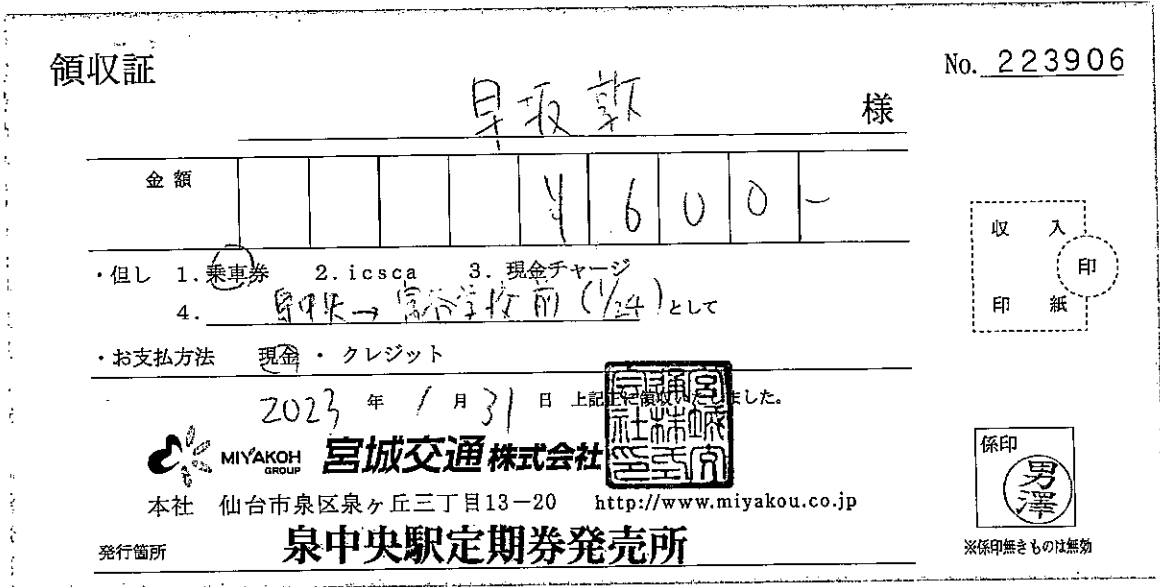 領収証
No. 223906
早坂敦 様
金額 ¥600-
・但し 1.乗車券 2.icsca 3.現金チャージ
4. 泉中央→富谷学校前(1/24)として
・お支払方法 現金・クレジット
2023年1月31日 上記正に領収いたしました。
収入印紙
印
MIYAKOH GROUP 宮城交通株式会社
宮城交通株式会社印
本社 仙台市泉区泉ヶ丘三丁目13-20 http://www.miyakou.co.jp
発行箇所 泉中央駅定期券発売所
係印
男澤
※係印無きものは無効